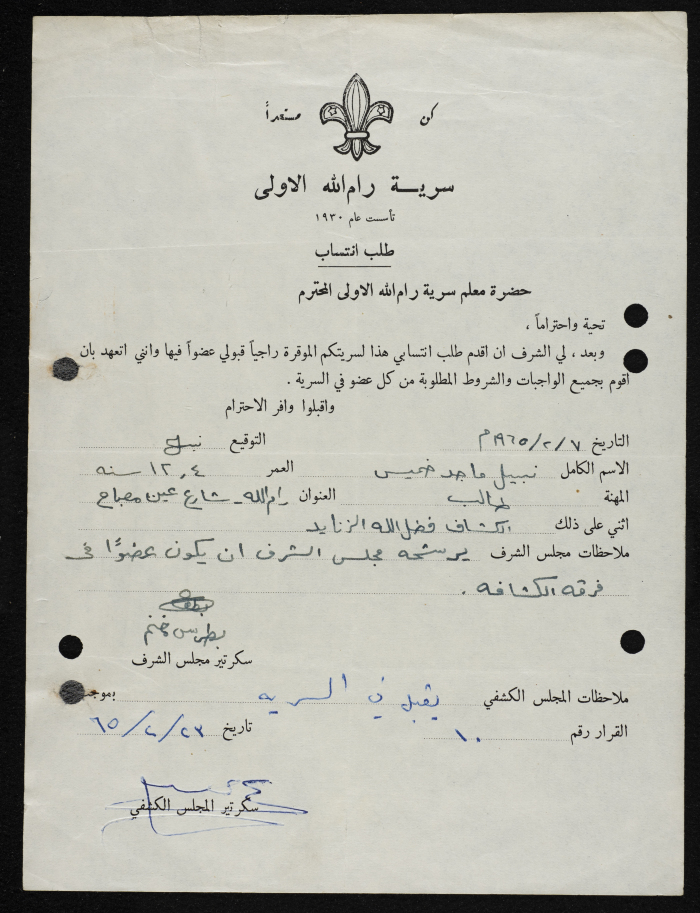 كن مستعداً
سريـــة رام الله الاولى
تأسست عام ١٩٣٠
طلب انتساب
حضرة معلم سرية رام الله الاولى المحترم
تحية واحتراماً ،
وبعد ، لي الشرف ان اقدم طلب انتسابي هذا لسريتكم الموقرة راجياً قبولي عضواً فيها وانني اتعهد بان
اقوم بجميع الواجبات والشروط المطلوبة من كل عضو في السرية .
واقبلوا وافر الاحترام
التاريخ ٧/٢/١٩٦٥م التوقيع نبيل
الاسم الكامل نبيل ماجد خميس العمر ١٢,٤ سنه
المهنة طالب العنوان رام الله - شارع عين مصباح
اثني على ذلك الكشاف فضل الله الزنايد
ملاحظات مجلس الشرف يرشحه مجلس الشرف ان يكون عضوًا في
فرقه الكشافه .
بطرس
سكرتير مجلس الشرف
ملاحظات المجلس الكشفي يقبل في السريه بموجب
القرار رقم ١٠ تاريخ ٢٣/٢/٦٥
سكرتير المجلس الكشفي